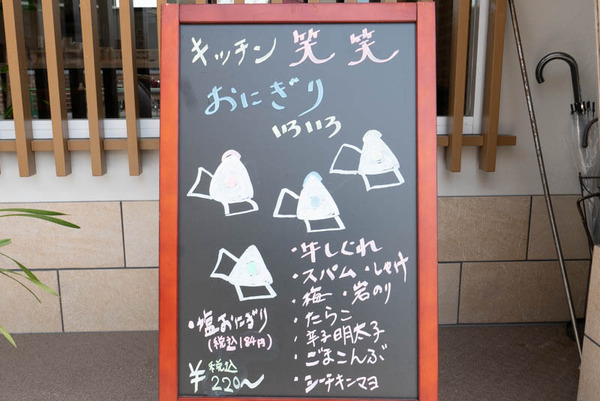 キッチン 笑笑
おにぎり
いろいろ
・牛しぐれ
・スパム ・しゃけ
・梅 ・岩のり
・たらこ
・辛子明太子
・ごまこんぶ
・シーチキンマヨ
・塩おにぎり
(税込184円)
¥税込220〜